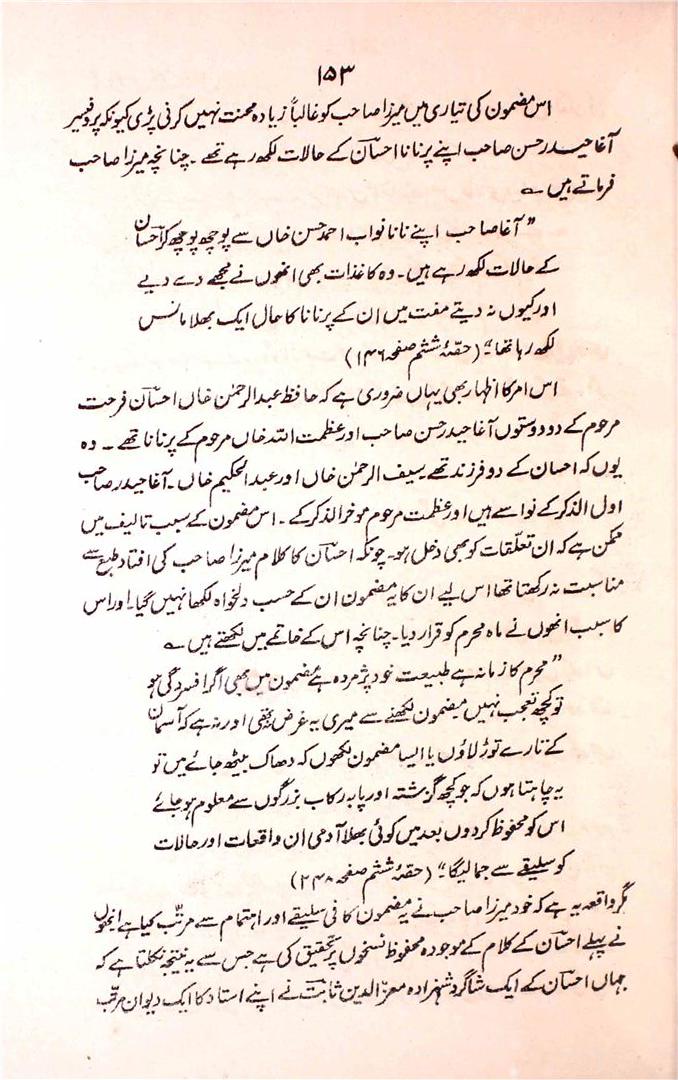 ۱۵۳
اس مضمون کی تیاری میں میرزا صاحب کو غالباً زیادہ محنت نہیں کرنی پڑی کیونکہ پروفیسر
آغا حیدر حسن صاحب اپنے پرنانا احسانؔ کے حالات لکھ رہے تھے ۔ چنانچہ میرزا صاحب
فرماتے ہیں ؎
” آغا صاحب اپنے نانا نواب احمد حسن خاں سے پوچھ پوچھ کر احسان
کے حالات لکھ رہے ہیں ۔ وہ کاغذات بھی انھوں نے مجھے دے دیے
اور کیوں نہ دیتے مفت میں ان کے پرنانا کا حال ایک بھلا مانس
لکھ رہا تھا “۔ (حصّۂ ششم صفحہ ۱۴۶)
اس امر کا اظہار بھی یہاں ضروری ہے کہ حافظ عبدالرحمٰن خاں احسانؔ فرحت
مرحوم کے دو دوستوں آغا حیدر حسن صاحب اور عظمت اللہ خاں مرحوم کے پرنانا تھے ۔ وہ
یوں کہ احسان کے دو فرزند تھے سیف الرحمٰن خاں اور عبدالحکیم خاں ۔ آغا حیدر صاحب
اول الذکر کے نواسے ہیں اور عظمت مرحوم موخر الذکر کے ۔ اس مضمون کے سبب تالیف میں
ممکن ہے کہ ان تعلّقات کو بھی دخل ہو ۔ چونکہ احسانؔ کا کلام میرزا صاحب کی افتاد طبع سے
مناسبت نہ رکھتا تھا اس لیے ان کا یہ مضمون ان کے حسب دلخواہ لکھا نہیں گیا ۔ اور اس
کا سبب انھوں نے ماہ محرم کو قرار دیا ۔ چنانچہ اس کے خاتمے میں لکھتے ہیں ؎
” محرم کا زمانہ ہے طبیعت خود پژمردہ ہے مضمون میں بھی اگر افسردگی ہو
تو کچھ تعجب نہیں مضمون لکھنے سے میری یہ غرض تھی اور نہ ہے کہ آسمان
کے تارے توڑ لاؤں یا ایسا مضمون لکھوں کہ دھاک بیٹھ جائے میں تو
یہ چاہتا ہوں کہ جو کچھ گزشتہ اور پا بہ رکاب بزرگوں سے معلوم ہو جائے
اس کو محفوظ کر دوں بعد میں کوئی بھلا آدمی ان واقعات اور حالات
کو سلیقے سے جما لیگا “۔ (حصّۂ ششم صفحہ ۲۴۸)
مگر واقعہ یہ ہے کہ خود میرزا صاحب نے یہ مضمون کافی سلیقے اور اہتمام سے مرتّب کیا ہے انھوں
نے پہلے احسانؔ کے کلام کے موجودہ محفوظ نسخوں پر تحقیق کی ہے جس سے یہ نتیجہ نکلتا ہے کہ
جہاں احسانؔ کے ایک شاگرد شہزادہ معزّ الدین ثابتؔ نے اپنے استاد کا ایک دیوان مرتّب